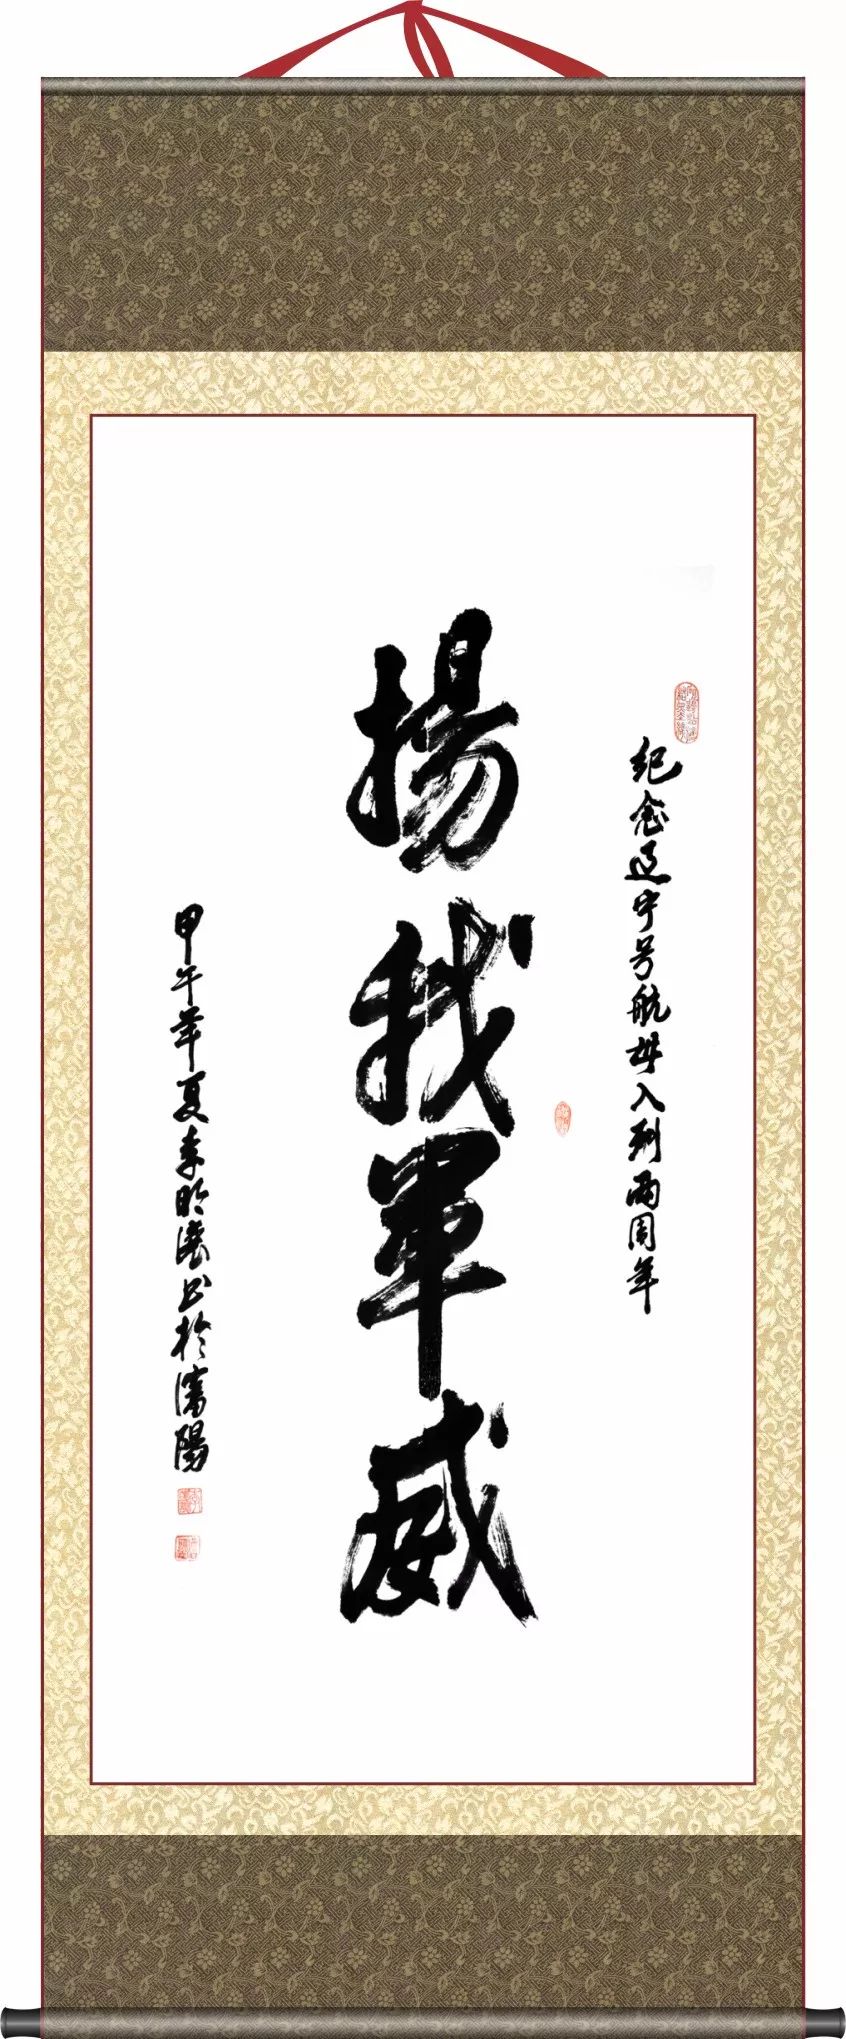 纪念辽宁号航母入列兩周年
揚我軍威
甲午年夏李书於瀋陽